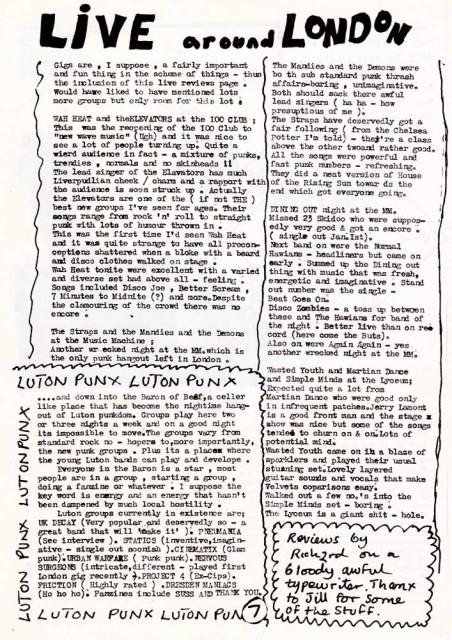 LIVE around LONDON
Gigs are , I suppose , a fairly important
and fun thing in the scheme of things - thus
the inclusion of this live reviews page .
Would have liked to have mentioned lots
more groups but only room for this lot .
WAH HEAT and theELEVATORS at the IOO CLUB ;
This was the reopening of the IOO Club to
"new wave music" (Ugh) and it was nice to
see a lot of people turning up. Quite a
wierd audience in fact - a mixture of punks,
trendies , normals and no skinheads !!
The lead singer of the Elavators has much
Liverpudlian cheek / charm and a rapport with
the audience is soon struck up . Actually
the Elevators are one of the ( if not THE )
best new groups I've seen for ages. Their
songs range from rock 'n' roll to straight
punk with lots of humour thrown in .
This was the first time I'd seen Wah Heat
and it was quite strange to have all precon-
ceptions shattered when a bloke with a beard
and disco clothes walked on stage .
Wah Heat tonite were excellent with a varied
and diverse set had above all - feeling .
Songs included Disco Joe , Better Scream ,
7 Minutes to Midnite (?) and more.Despite
the clamouring of the crowd there was no
encore .
The Straps and the Mandies and the Demons
at the Music Machine ;
Another wr ecked night at the MM.which is
the only punk hangout left in London .
LUTON PUNX LUTON PUNX
LUTON PUNX LUTON PUNX
....and down into the Baron of Beef,a celler
like place that has become the nightime hang-
out of Luton punkdom. Groups play here two
or three nights a week and on a good night
its impossible to move.The groups vary from
standard rock no - hopers to,more importantly,
the new punk groups . Plus its a place where
the young Luton bands can play and develope .
Everyone in the Baron is a star , most
people are in a group , starting a group ,
doing a fanzine or whatever . I suppose the
key word is energy and an energy that hasn't
been dampened by much local hostility .
Luton groups currently in existence are;
UK DECAY (Very popular and deservedly so - a
great band that will 'make it' ). PNEUMANIA
(See interview ). STATICS (inventive,imagin-
ative - single out soonish ).CINEMATIX (Glam
punk).URBAN WARFARE ( Punk punk).NERVOUS
SURGEONS (intricate,different - played first
London gig recently ).PROJECT 4 (Ex-Cips).
FRICTION ( Highly rated ) .DRESDEN MANIACS
(Ho ho ho). Fanzines include SUSS AND THANK YOU.
LUTON PUNX LUTON PUN
7
The Mandies and the Demons were
bo th sub standard punk thrash
affairs-boring , unimaginative.
Both should sack there awful
lead singers ( ha ha - how
presuptious of me ).
The Straps have deservedly got a
fair following ( from the Chelsea
Potter I'm told) - they're a class
above the other twoand rather good.
All the songs were powerful and
fast punk numbers - refreshing.
They did a neat version of House
of the Rising Sun towar ds the
end which got everyone going.
DINING OUT night at the MM.
Missed 23 Skidoo who were suppos-
edly very good & got an encore .
( single out Jan.Ist).
Next band on were the Normal
Hawians - headliners but came on
early . Summed up the Dining out
thing with music that was fresh,
energetic and imaginative . Stand
out number was the single -
Beat Goes On.
Disco Zombies - a toss up between
these and The Hawians for band of
the night . Better live than on rec
cord (here come the Buts).
Also on were Again Again - yes
another wrecked night at the MM.
Wasted Youth and Martian Dance
and Simple Minds at the Lyceum;
Expected quite a lot from
Martian Dance who were good only
in infrequent patches.Jerry Lamont
is a good front man and the stage
show was nice but some of the songs
tended to churn on & on.Lots of
potential mind.
Wasted Youth came on in a blaze of
sparklers and played their usual
stunning set.Lovely layered
guitar sounds and vocals that make
Velvets coparisons easy.
Walked out a few no.'s into the
Simple Minds set - boring .
The Lyceum is a giant shit - hole.
Reviews by
Richard on a
bloody awful
typewriter. Thanx
to Jill for some
of the stuff.